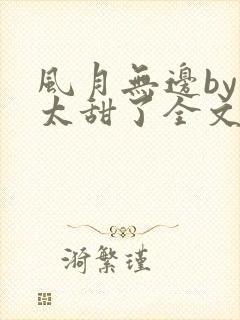 風月無邊by
太甜了全文
漪繁瑾